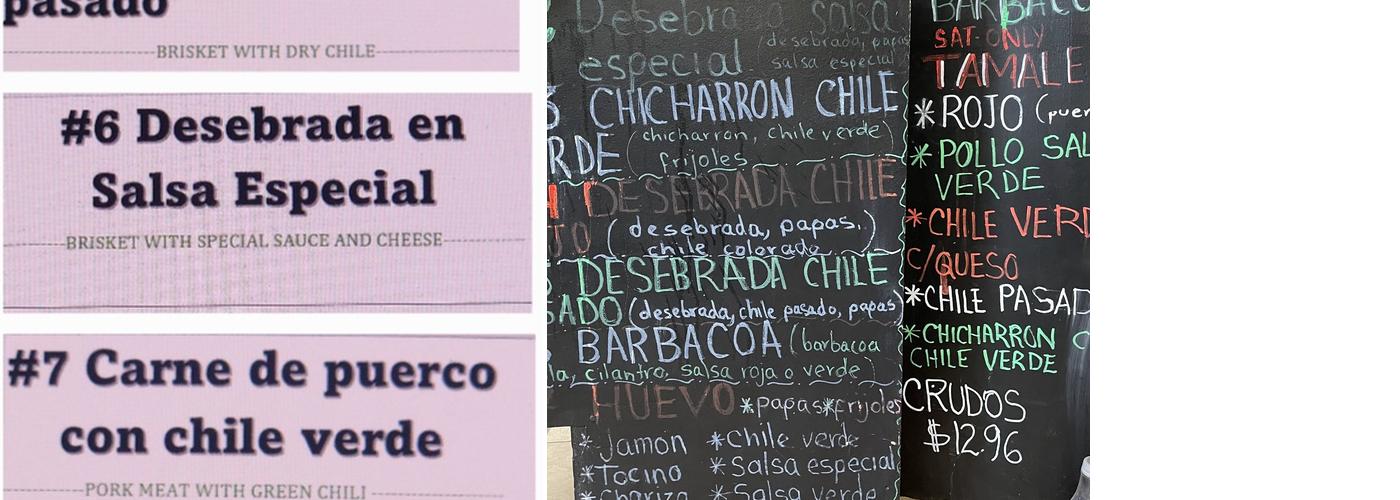 pasado
BRISKET WITH DRY CHILE
#6 Desebrada en
Salsa Especial
BRISKET WITH SPECIAL SAUCE AND CHEESE
#7 Carne de puerco
con chile verde
PORK MEAT WITH GREEN CHILI
Desebrada salsa
especial (desebrada, papas
salsa especial)
CHICHARRON CHILE
RDE (chicharron, chile verde)
frijoles
DESEBRADA CHILE
JO (desebrada, papas,)
chile colorado
DESEBRADA CHILE
SADO (desebrada, chile pasado, papas)
BARBACOA (barbacoa
la, cilantro, salsa roja o verde)
HUEVO *papas *frijoles
*Jamon *Chile verde
*Tocino *Salsa especial
*Chorizo *Salsa verde
BARBACO
SAT-ONLY
TAMALE
*ROJO (puer
*POLLO SAL
VERDE
*CHILE VERD
C/QUESO
*CHILE PASAD
*CHICHARRON C
CHILE VERDE
CRUDOS
$12.96